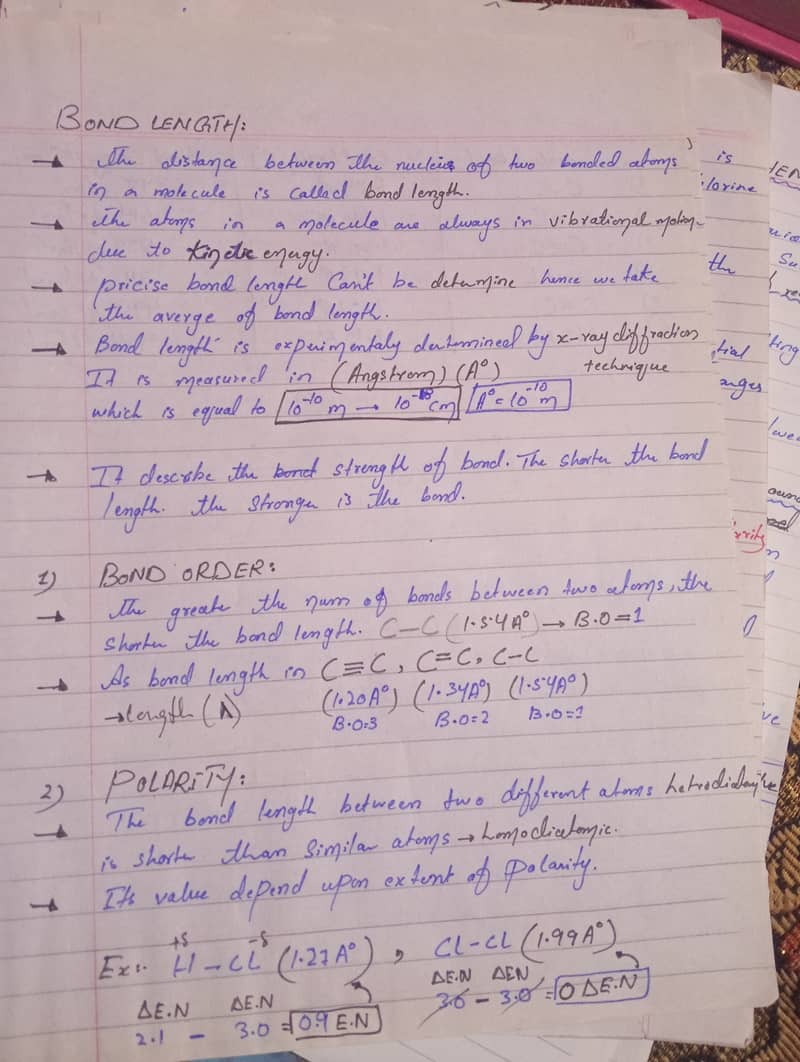 BOND LENGTH:
→ The distance between the nucleis of two bonded atoms
in a molecule is called bond length.
→ The atoms in a molecule are always in vibrational motion
due to kinetic energy.
→ Pricise bond length Can't be determine hence we take
the averge of bond length.
→ Bond length is experimentaly determined by x-ray diffraction
technique
It is measured in (Angstrom) (A°)
which is equal to 10⁻¹⁰ m → 10⁻⁸ cm A° = 10⁻¹⁰ m
→ It describe the bond strength of bond. The shorter the bond
length. the stronger is the bond.
1) BOND ORDER:
→ The greater the num of bonds between two atoms, the
shorter the bond length. C–C (1.54A°) → B.O=1
→ As bond length in C≡C, C=C, C–C
→ length (A) (1.20A°) (1.34A°) (1.54A°)
B.O=3 B.O=2 B.O=1
2) POLARITY:
→ The bond length between two different atoms hetrodiatomic
is shorter than similar atoms → homodiatomic.
→ Its value depend upon extent of Polarity.
+δ -δ
Ex:- H – Cl (1.27A°) , Cl–Cl (1.99A°)
ΔE.N ΔE.N ΔE.N ΔEN
2.1 – 3.0 = 0.9 E.N 3.0 – 3.0 = 0 ΔE.N
is
lorine
the
tial
anges